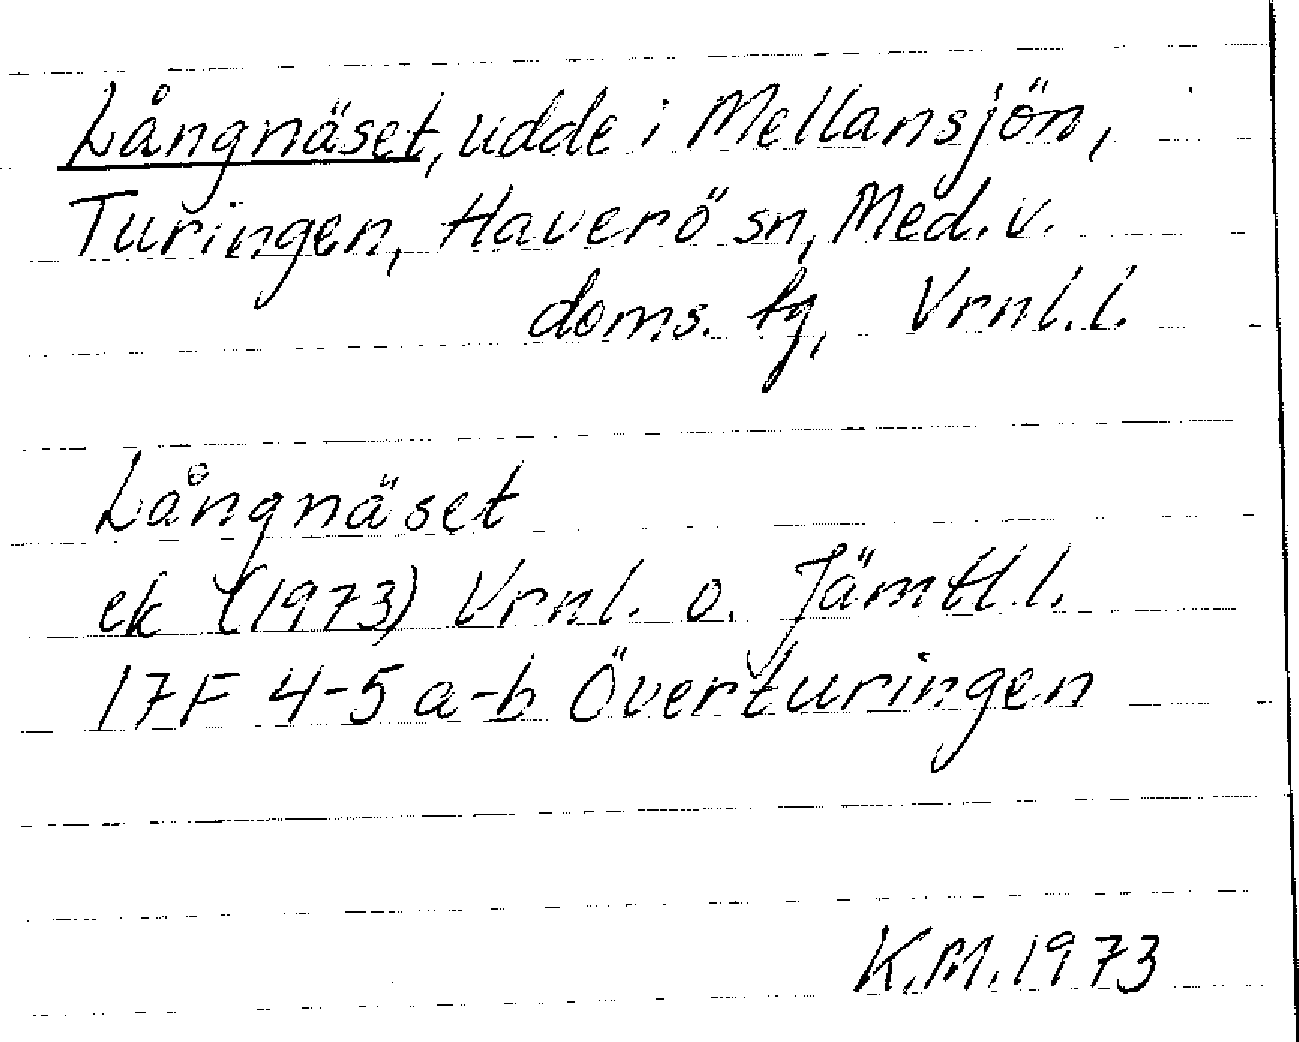 Långnäset, udde i Mellansjön,
Turingen, Haverö sn, Med. v.
doms. tg, Vrnl. l.
Långnäset
ek (1973) Vrnl. o. Jämtl. l.
17F 4-5 a-b Överturingen
K.M. 1973